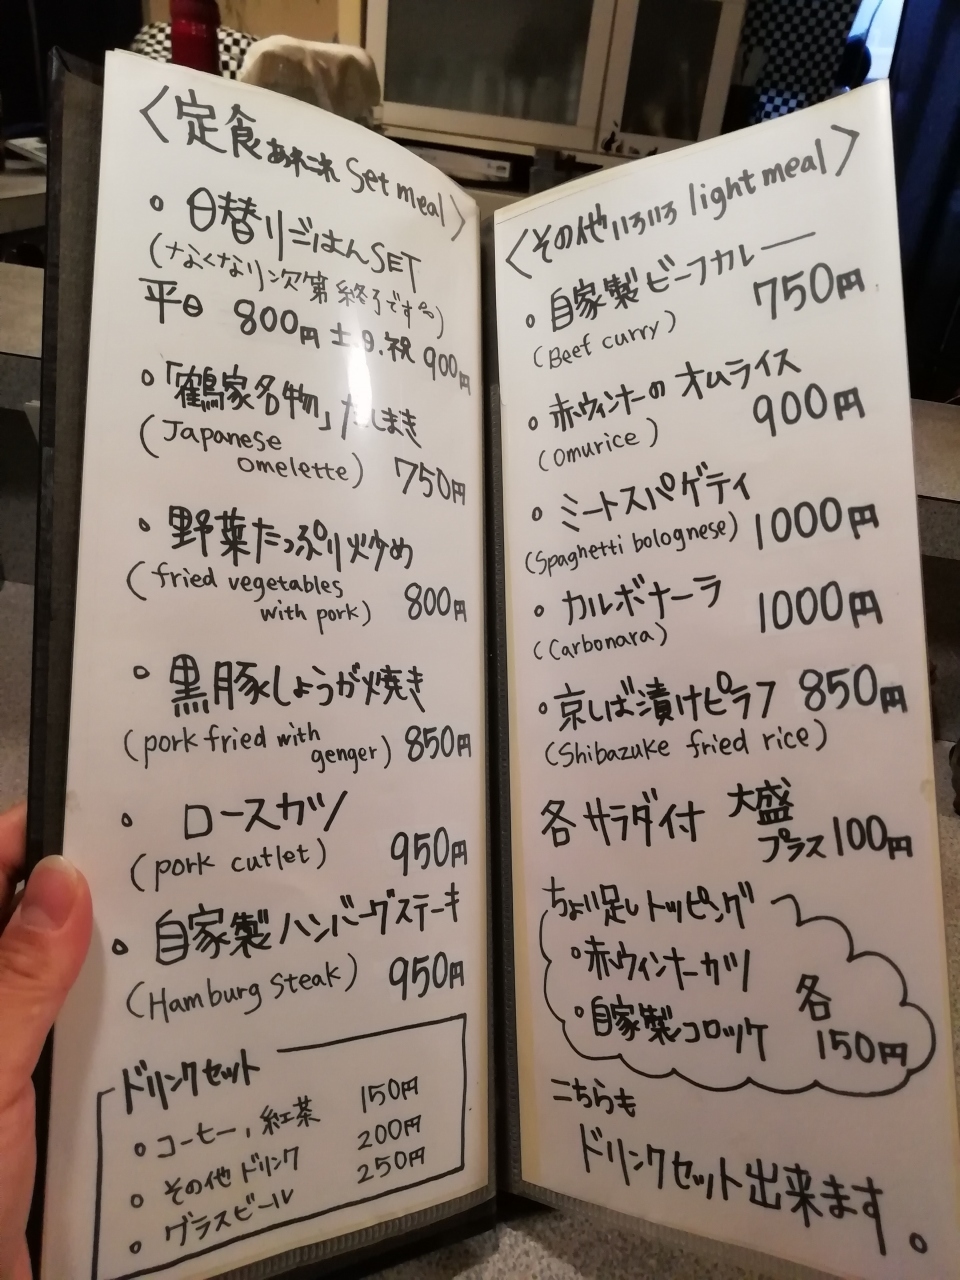 〈定食あれこれ Set meal〉
• 日替りごはんSET
(なくなり次第終了です)
平日 800円 土.日.祝 900円
• 「鶴家名物」だしまき
(Japanese
omelette) 750円
• 野菜たっぷり炒め
(fried vegetables
with pork) 800円
• 黒豚しょうが焼き
(pork fried with
genger) 850円
• ロースカツ
(pork cutlet) 950円
• 自家製ハンバーグステーキ
(Hamburg steak) 950円
ドリンクセット
• コーヒー, 紅茶 150円
• その他ドリンク 200円
• グラスビール 250円
〈その他いろいろ light meal〉
• 自家製ビーフカレー 750円
(Beef curry)
• 赤ウィンナーの オムライス
(Omurice) 900円
• ミートスパゲティ
(Spaghetti bolognese) 1000円
• カルボナーラ 1000円
(Carbonara)
• 京しば漬けピラフ 850円
(Shibazuke fried rice)
各サラダ付 大盛
プラス100円
ちょい足しトッピング
• 赤ウィンナーカツ
• 自家製コロッケ 各
150円
こちらも
ドリンクセット出来ます。